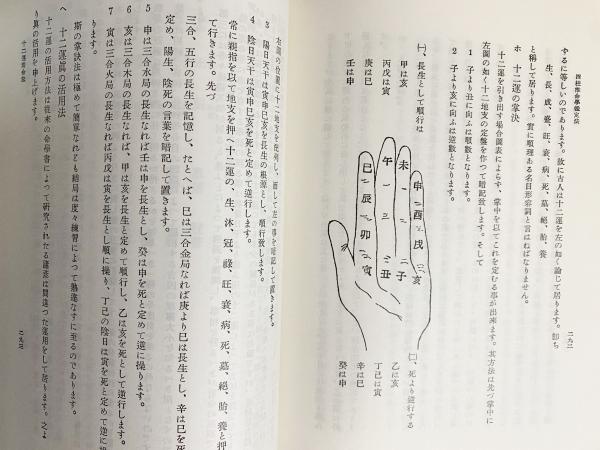 四柱推命學鑑定法
二九二
するに等しいのであります。故に古人は十二運を左の如く論じて居ります。卽ち
生、長、成、盛、旺、衰、病、死、墓、絕、胎、養
と稱して居ります。實に順理ある名目形容詞と言はねばなりません。
ホ 十二運の掌決
十二運を引き出す場合圖表によらず、掌中を以てこれを定むる事が出來ます。其方法は先づ掌中に
左圖の如く十二地支の定盤を作つて暗記致します。そして
1 子より丑に向ふは順數となります。
2 子より亥に向ふは逆數となります。
㈠、長生として順行は
甲は亥
丙戊は寅
庚は巳
壬は申
巳 午 未 申
辰 酉
卯 戌
寅 丑 子 亥
㈡、死より逆行する
乙は亥
丁己は寅
辛は巳
癸は申
右圖の位置に十二地支を配列し、而して左の事を暗記して置きます。
3 陽日天干は寅申巳亥を長生の根源とし、順行致します。
4 陰日天干は寅申巳亥を死と定めて逆行します。
常に親指を以て地支を押へ十二運の、生、沐、冠、祿、旺、衰、病、死、墓、絕、胎、養と押
て行きます。先づ
三合、五行の長生を記憶し、たとへば、巳は三合金局なれば庚より巳は長生とし、辛は巳を死
定め、陽生、陰死の言葉を暗記して置きます。
5 申は三合水局の長生なれば壬は申を長生とし、癸は申を死と定めて逆に操ります。
6 亥は三合木局の長生なれば、甲は亥を長生と定めて順行し、乙は亥を死として逆行します。
7 寅は三合火局の長生なれば丙戊は寅を長生とし順に操り、丁己の陰日は寅を死と定めて逆に操
ります。
斯の掌訣法は極めて簡單なれども結局は度々練習によつて熟達なすに至るのであります。
ヘ 十二運眞の活用法
十二運の活用方法は從來の命學書によつて研究されたる諸姿は間違つた運用をして居ります。之よ
り眞の活用を申上げます。
十二運活命法
二九三